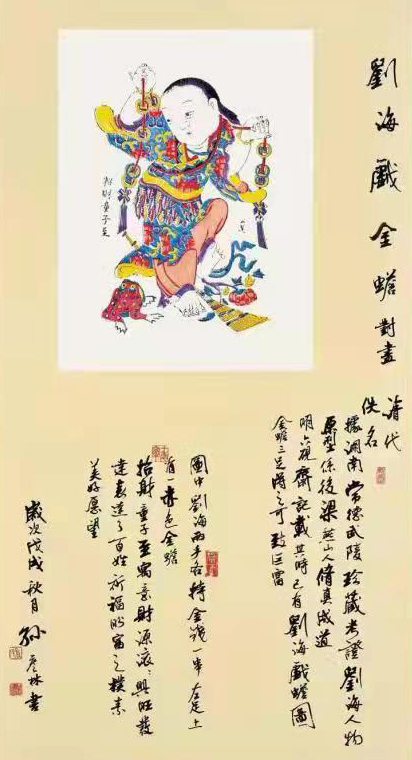 劉海戲金蟾對畫
清代
佚名
據湖南常德武陵珍藏考證劉海人物
原型係後梁燕山人脩真成道
明六硯齋記載其時已有劉海戲蟾圖
金蟾三足得之可致巨富
圖中劉海兩手各持金錢一串左足上
有一赤色金蟾
招財童子至寓意財源滾滾興旺發
達表達了百姓祈福盼富之樸素
美好願望
歲次戊戌秋月孫彥林書
招財童子至